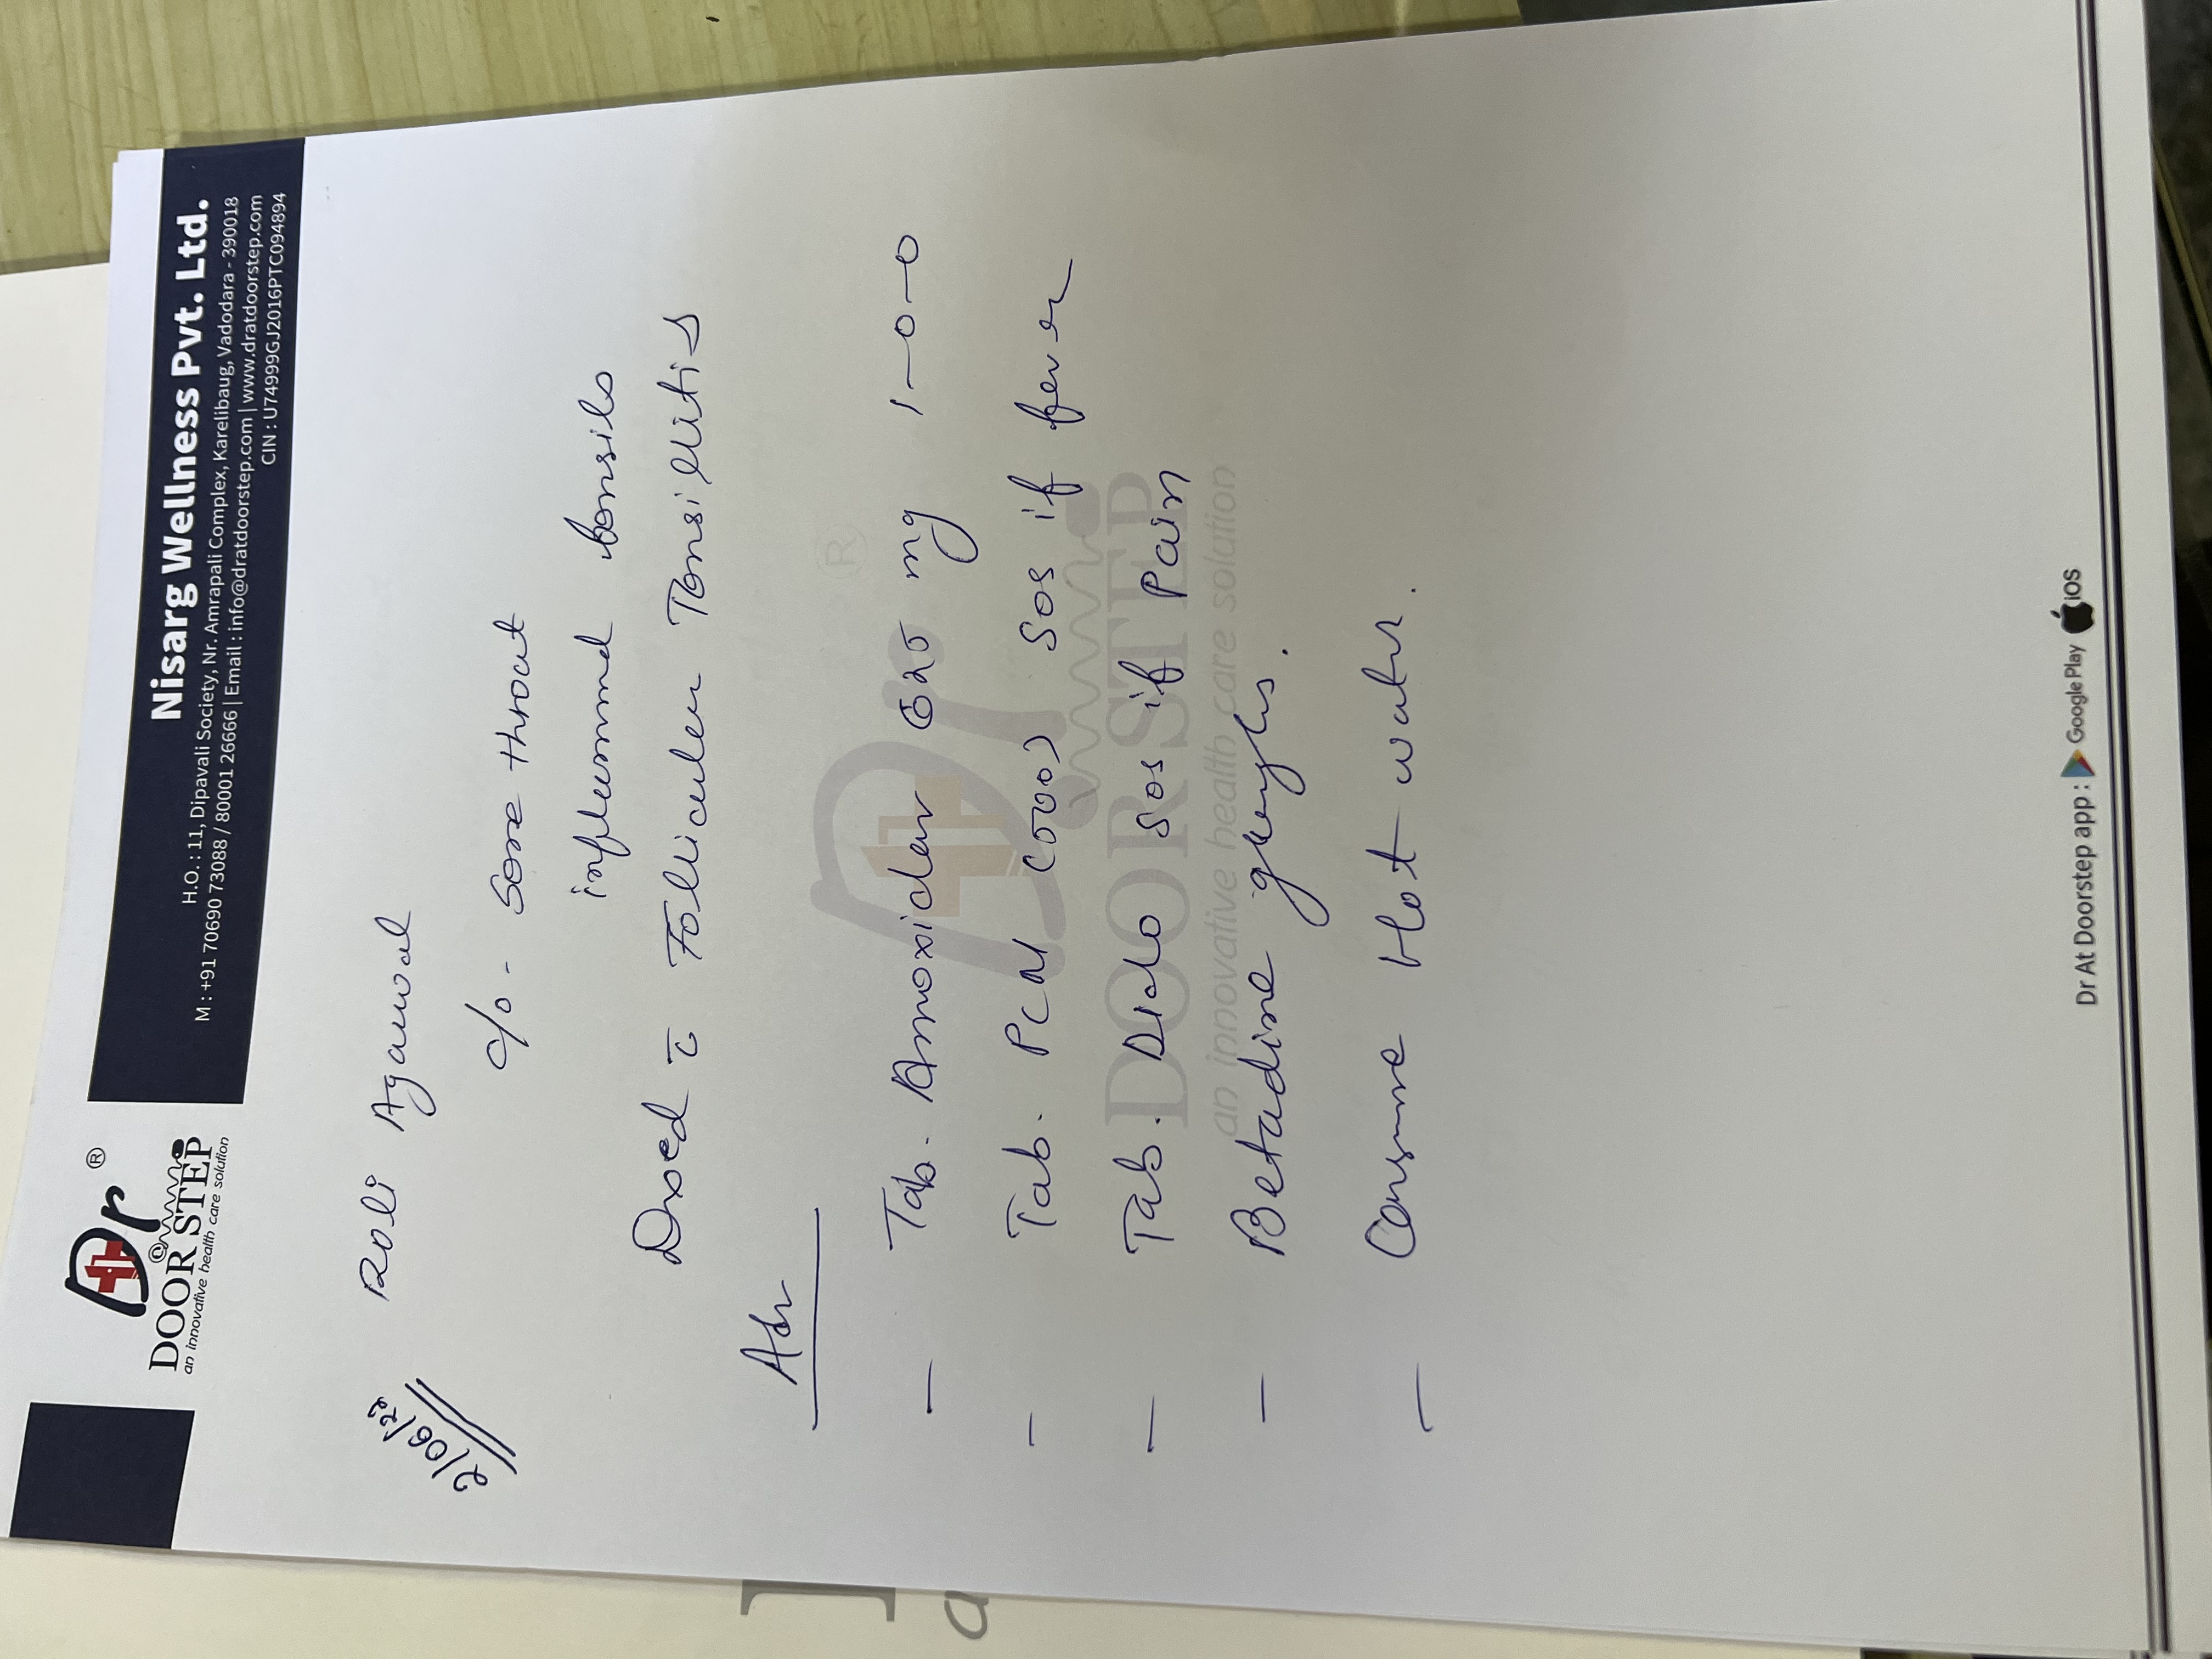 Dr ®
@
DOOR STEP
an innovative health care solution
Nisarg Wellness Pvt. Ltd.
H.O. : 11, Dipavali Society, Nr. Amrapali Complex, Karelibaug, Vadodara - 390018
M : +91 70690 73088 / 80001 26666 | Email : info@dratdoorstep.com | www.dratdoorstep.com
CIN : U74999GJ2016PTC094894
2/06/22
Roli Agarwal
c/o - Sore throat
inflammd tonsils
Dxed c̄ Follicular Tonsillitis
Adv
- Tab. Amoxiclav 625 mg 1-0-0
- Tab. PCM (500) SOS if fever
- Tab. Diclo SOS if Pain
- Betadine gargles.
- Consume Hot water.
Dr ®
DOOR STEP
an innovative health care solution
Dr At Doorstep app : Google Play iOS